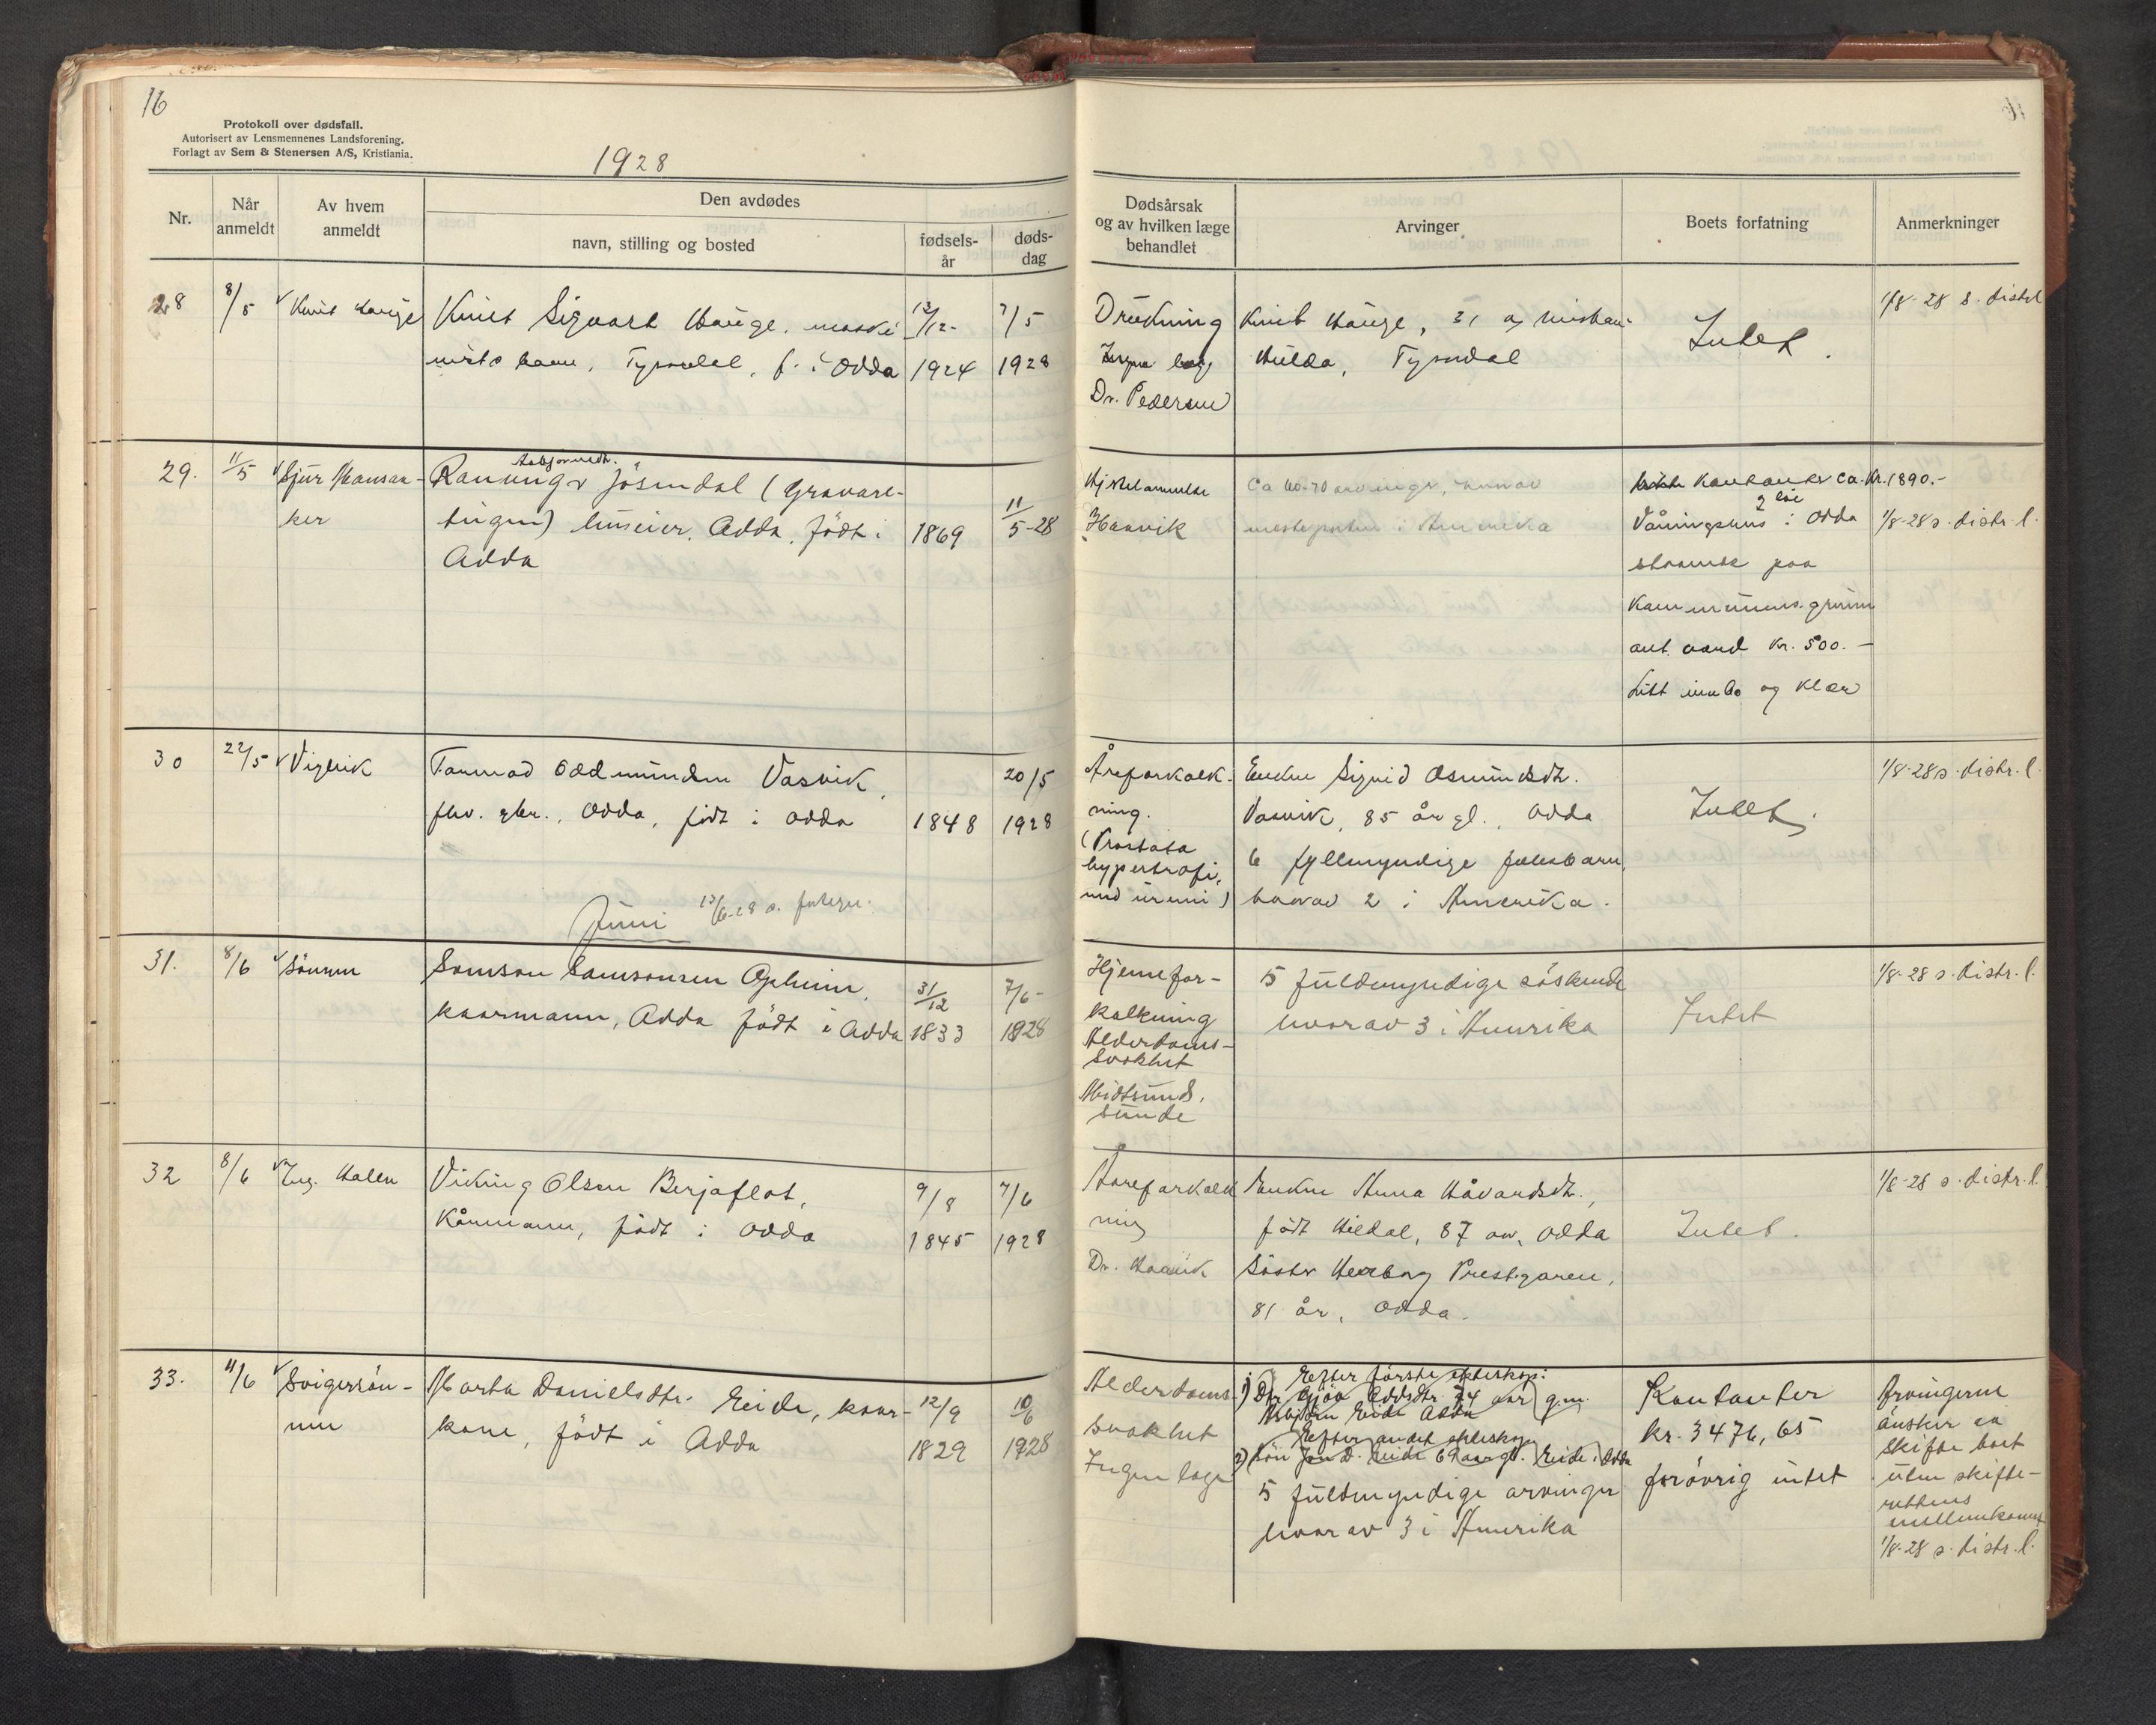 16
Protokoll over dødsfall.
Autorisert av Lensmennenes Landsforening.
Forlagt av Sem & Stenersen A/S, Kristiania.
1928
Nr.
Når anmeldt
Av hvem anmeldt
Den avdødes
navn, stilling og bosted
fødsels-år
døds-dag
Dødsårsak
og av hvilken læge
behandlet
Arvinger
Boets forfatning
Anmerkninger
28
8/5
Knut Hauge
Knut Sigvart Hauge, maski-
nists barn, Tyssedal, f. i Odda
13/12-
1924
7/5
1928
Drukning
Ingen læg
Dr. Pedersen
Knut Hauge, 31 og
Hulda, Tyssedal
Intet.
1/8-28 s. distr.l
29.
11/5
Sjur Mansaa-
ker
Asbjørnsdtr.
Jösendal (Gravare-
huseier, Odda, födt i
Odda
1869
11/5-28
Haavik
Ca 60-70 arvinger, hvorav
mesteparten i Amerika
Kontanter ca. Kr. 1890.-
2 Våningshus i Odda
staaende paa
Kommunens grunn
ant. værd Kr. 500.-
Litt innbo og klær
1/8-28 s. distr. l.
30
22/5
Vigleik
Tormod Oddmundsen Vasvik,
fhv. gbr., Odda, født i Odda
1848
20/5
1928
Åreforkalk-
ning.
(Prostata
hypertrofi,
med uremi)
Enken Sigrid Osmundsdtr.
Vasvik, 85 år gl., Odda
6 fyllmyndige fellesbarn,
hvorav 2 i Amerika.
Intet.
1/8-28 s. distr. l.
Juni
31.
8/6
Sönnen
Samson Samsonsen Opheim,
kaarmann, Odda født i Odda
31/12
1833
7/6-
1928
Hjernefor-
kalkning
Alderdoms-
svakhet
Midtsund,
Sunde
5 fuldmyndige söskende
hvorav 3 i Amerika
Intet
1/8-28 s. distr. l.
32
8/6
Viking Olsen Berjaflot,
Kårmann, født i Odda
9/8
1845
7/6
1928
Aareforkalk
ning
Dr. Haavik
Enken Anna Håvardsdtr.,
født Hildal, 87 år, Odda
Söster Herborg Prestgaren,
81 år, Odda.
Intet.
1/8-28 s. distr. l.
33.
11/6
Svigersön-
nen
Marta Danielsdtr. Eide, kaar-
kone, födt i Odda
12/9
1829
10/6
1928
Alderdoms-
svakhet
Ingen læge
Efter förste ekteskap:
1) Dtr. Gjöa Oddsdtr. 74 aar g.m.
Eide Odda
Efter andet ekteskap
2) Sön Jon D. Eide 69 aar gl. Eide i Odda
5 fuldmyndige arvinger
hvorav 3 i Amerika
Kontanter
kr. 3476,65
forövrig intet
Arvingerne
önsker at
skifte boet
uten skifte-
rettens
mellemkomst
1/8-28 s. distr. l.